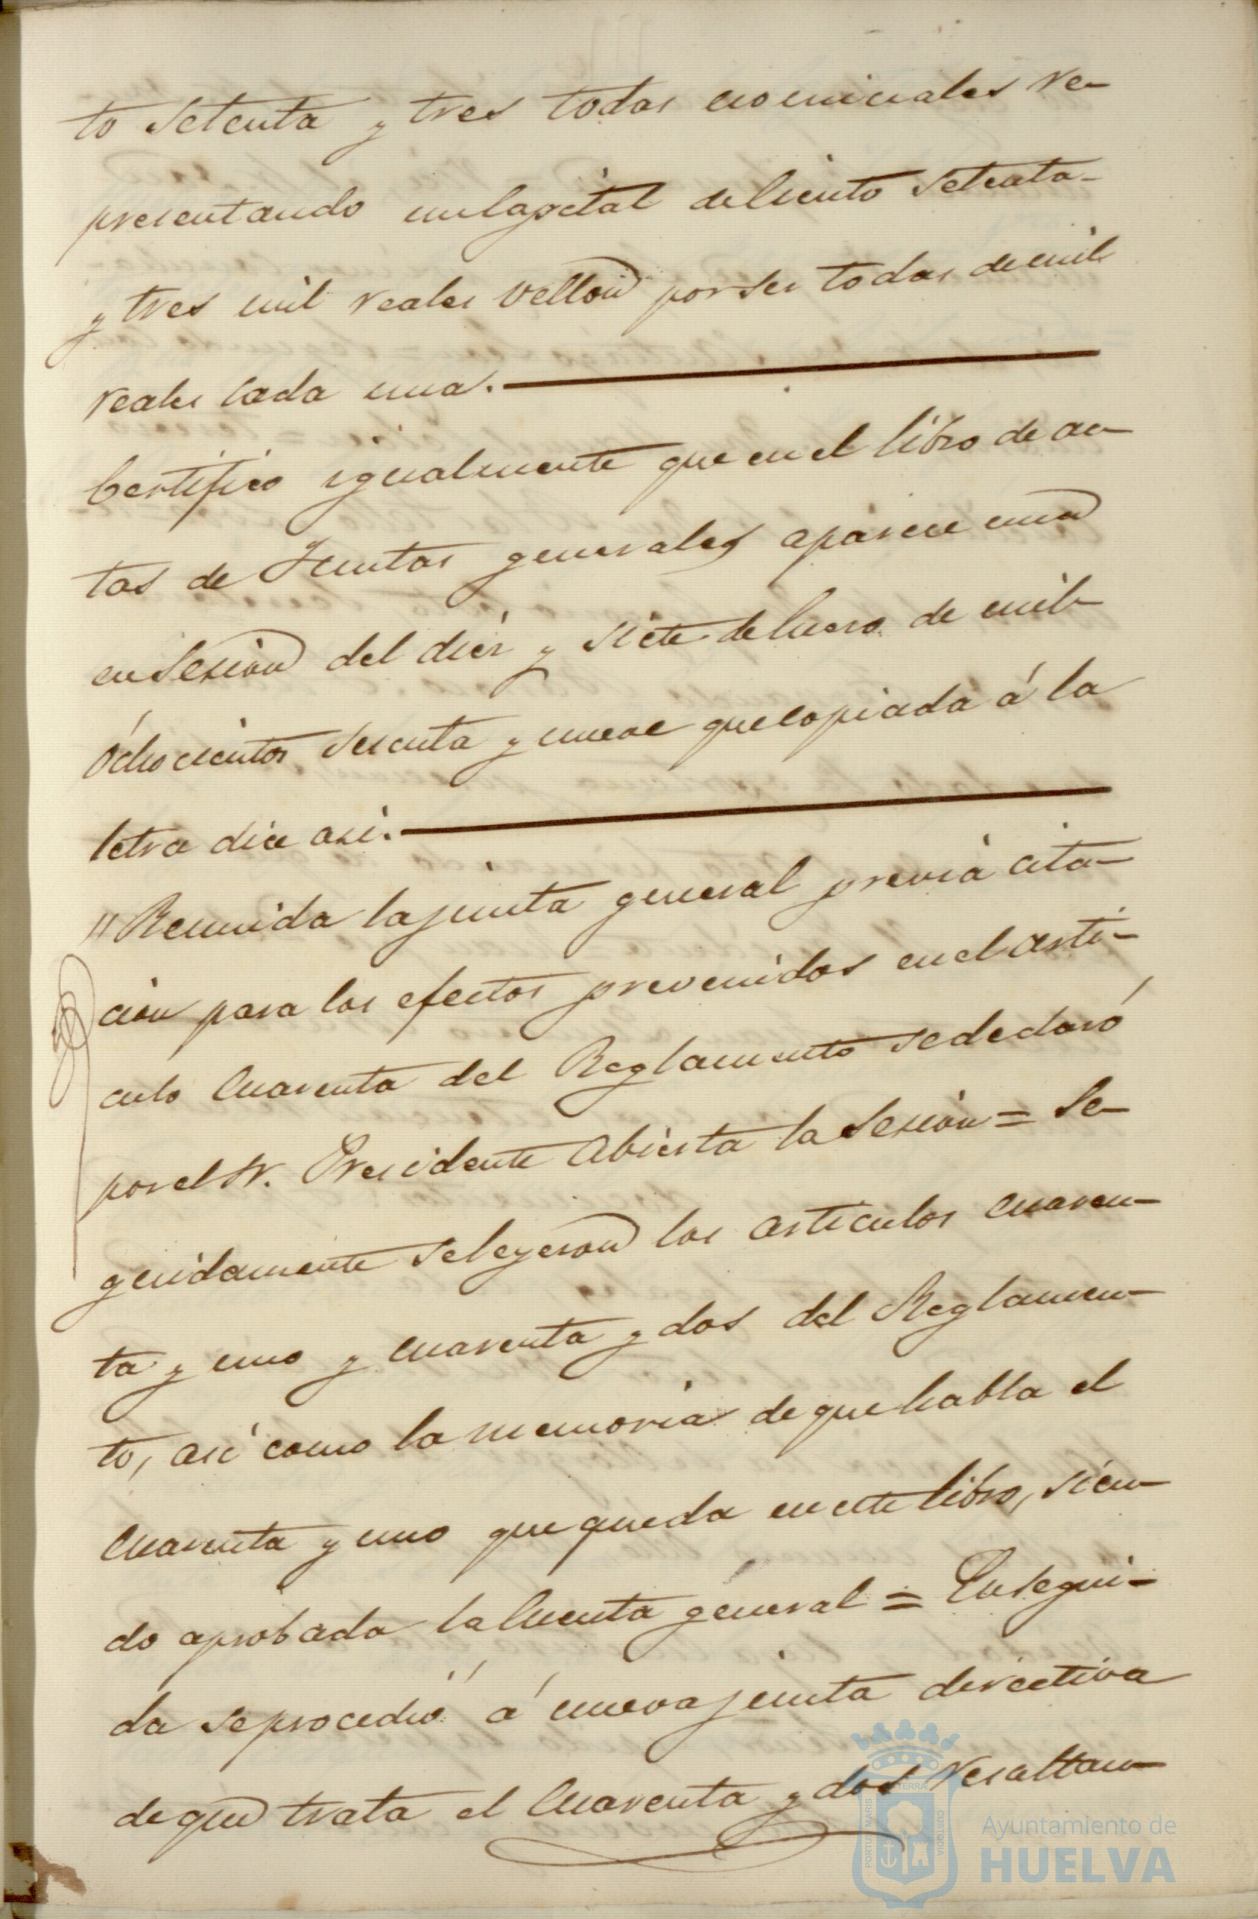 to setenta y tres todas nominales re-
presentando un Capital de Ciento setenta-
y tres mil reales vellon por ser todas de mil
reales cada una.
Certifico igualmente que en el libro de ac-
tas de Juntas generales aparece una
en sesion del diez y siete de Enero de mil
ochocientos sesenta y nueve que copiada á la
letra dice asi.
"Reunida la junta general previa cita-
cion para los efectos prevenidos en el arti-
culo Cuarenta del Reglamento se declaró
por el Sr. Presidente Abierta la Sesion = Se-
guidamente se leyeron los articulos cuaren-
ta y uno y cuarenta y dos del Reglamen-
to, asi como la memoria de que habla el
Cuarenta y uno que queda en este libro, sien-
do aprobada la Cuenta general = Ensegui-
da se procedió á nueva junta directiva
de que trata el Cuarenta y dos resultan-
Ayuntamiento de
HUELVA